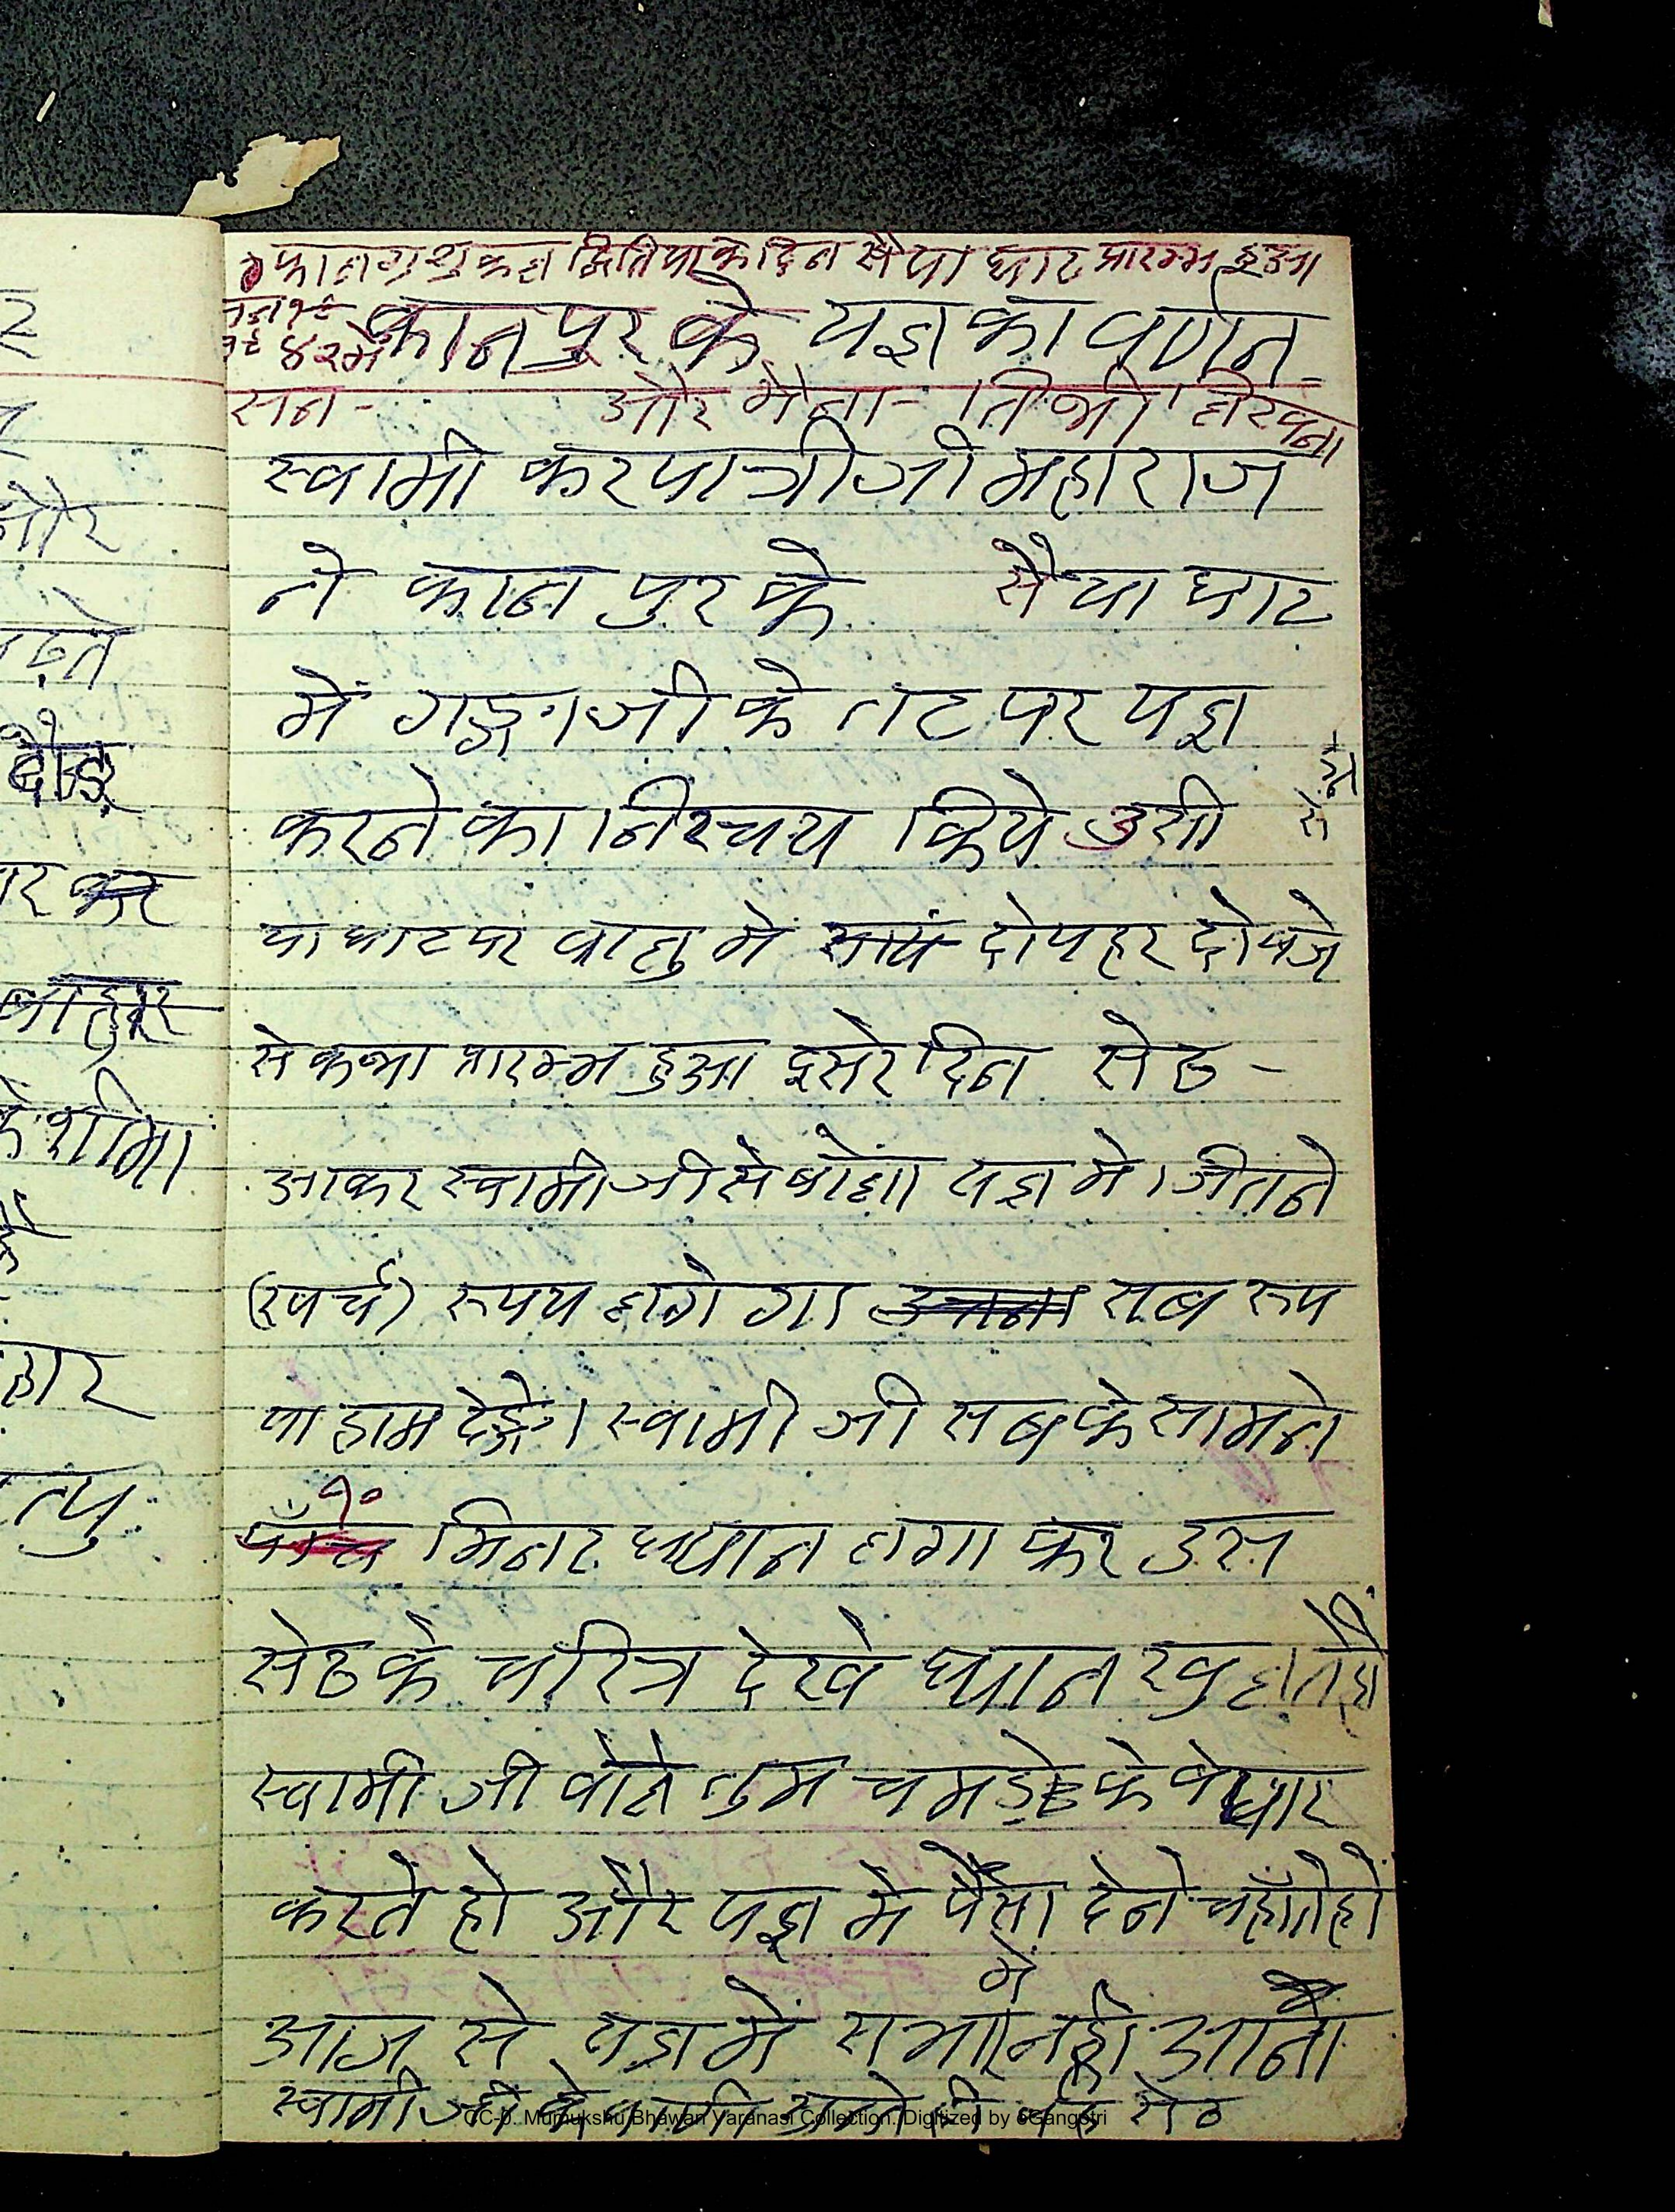 फालगु शुकल द्वितिया के दिन सैया घाट प्रारम्भ हुआ
४२ में कानपुर के यज्ञ का वर्णन-
सन- और मेला- तिथी लिखना
स्वामी करपात्री जी महाराज
ने कानपुर के सैया घाट
में गङ्गा जी के तट पर यज्ञ
करने का निश्चय किये उसी
या घाट पर वालु मे सायं दोपहर दो बजे
से कथा प्रारम्भ हुआ दुसरे दिन सेठ-
आकर स्वामी जी से बोला यज्ञ मे जितने
(खर्च) रुपय लगेगा उतना सब रुप
या हाम देङ्गे। स्वामी जी सब के सामने
पाँच १० मिनट ध्यान लगा कर उस
सेठ के चरित्र देखे ध्यान खुलते ही
स्वामी जी वोले तुम चमड़े के वेपार
करते हो और यज्ञ मे पैसा देने चहाते हो
आज से यज्ञ में सभा में नही आना
स्वामी जी के सेठ
CC-0. Mumukshu Bhawan Varanasi Collection. Digitized by eGangotri